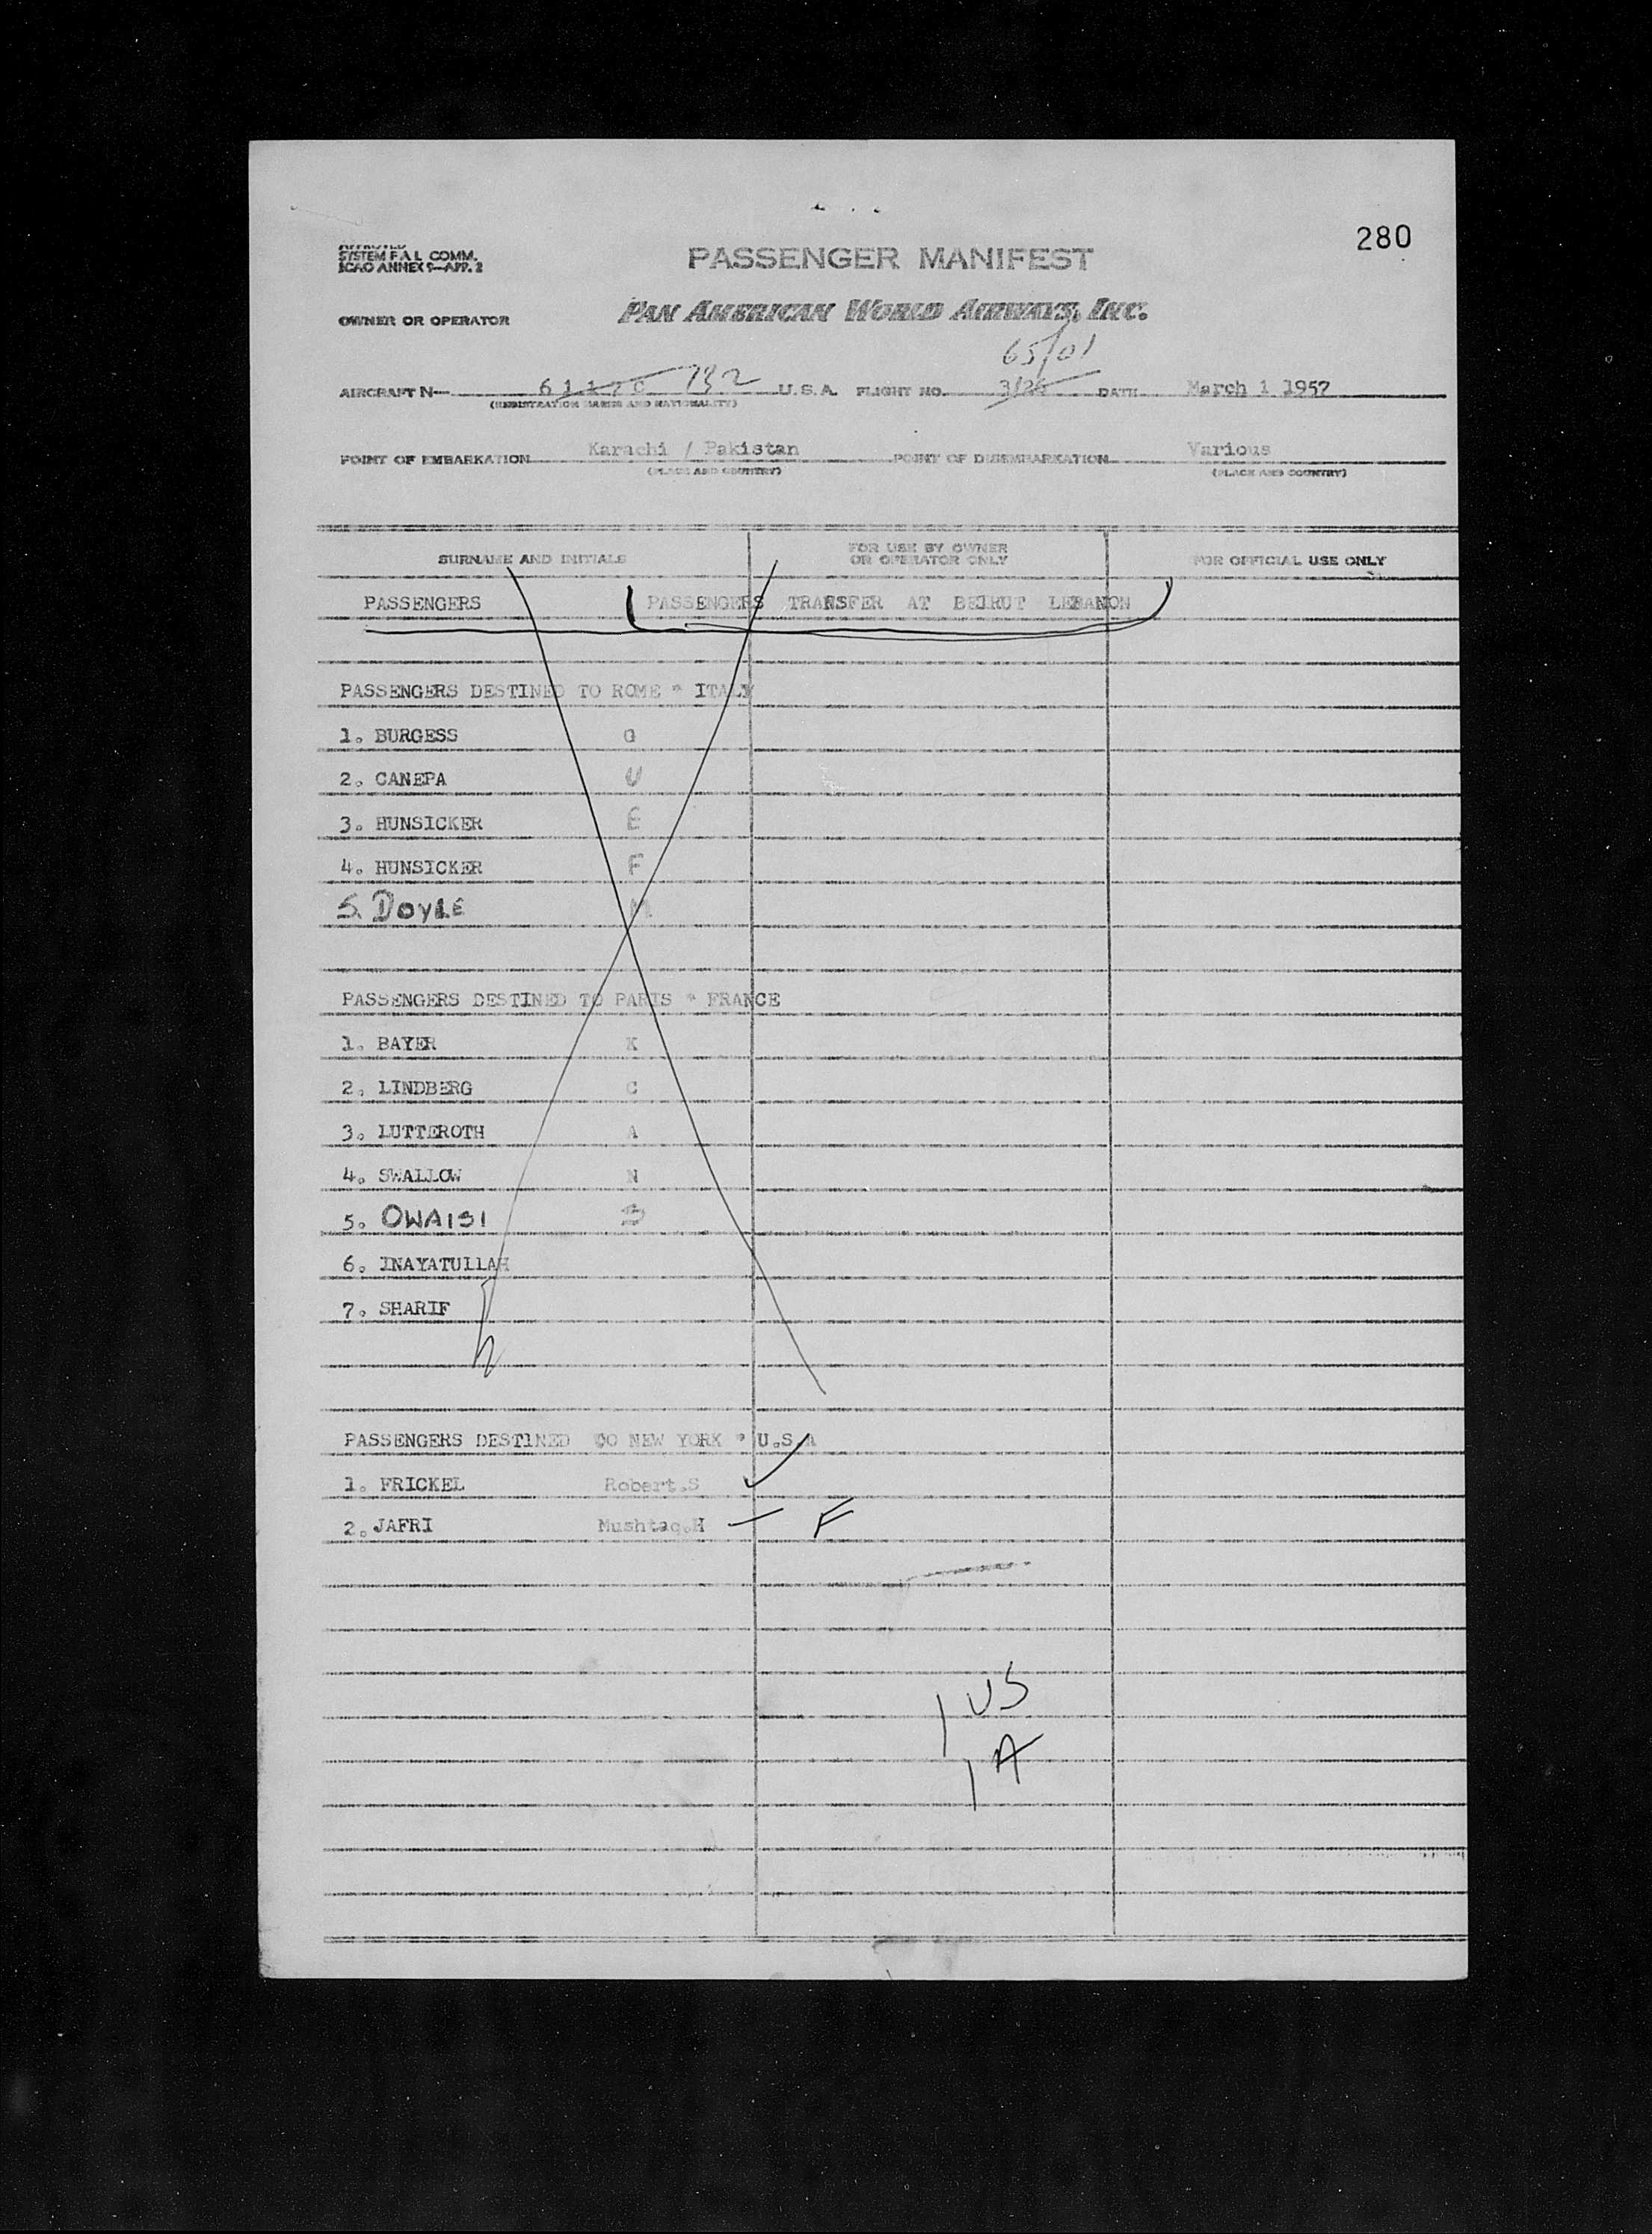 280
APPROVED
SYSTEM F A L COMM.
ICAO ANNEX 9—APP. 2
PASSENGER MANIFEST
OWNER OR OPERATOR PAN AMERICAN WORLD AIRWAYS, INC.
65/01
AIRCRAFT N— 732 U.S.A. FLIGHT NO. 3/26 DATE March 1 1957
(REGISTRATION MARKS AND NATIONALITY)
POINT OF EMBARKATION Karachi / Pakistan POINT OF DISEMBARKATION Various
(PLACE AND COUNTRY) (PLACE AND COUNTRY)
SURNAME AND INITIALS FOR USE BY OWNER OR OPERATOR ONLY FOR OFFICIAL USE ONLY
PASSENGERS PASSENGERS TRANSFER AT BEIRUT LEBANON
PASSENGERS DESTINED TO ROME * ITALY
1. BURGESS G
2. CANEPA U
3. HUNSICKER E
4. HUNSICKER F
5. DOYLE M
PASSENGERS DESTINED TO PARIS * FRANCE
1. BAYER K
2. LINDBERG C
3. LUTTEROTH A
4. SWALLOW N
5. OWAISI
6. INAYATULLAH
7. SHARIF
PASSENGERS DESTINED TO NEW YORK * U.S.A
1. FRICKEL Robert.S
2. JAFRI Mushtaq.H F
1 US
1 A